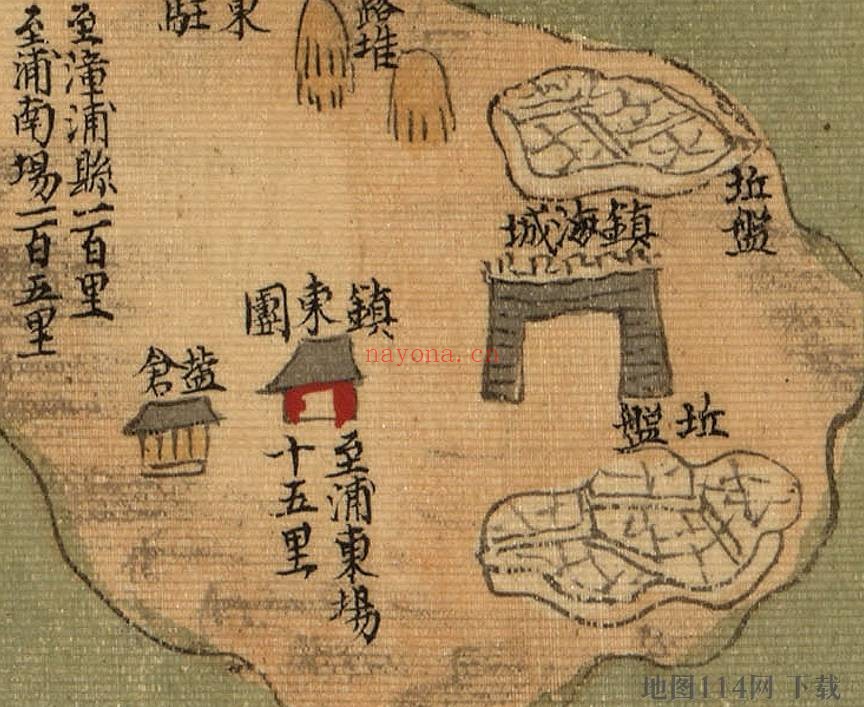 坵盤
鎮海城
坵盤
路堆
東駐
鎮東團
至浦東場
十五里
盐倉
至漳浦縣二百里
至浦南場二百五里
nayona.cn
地图114网 下载